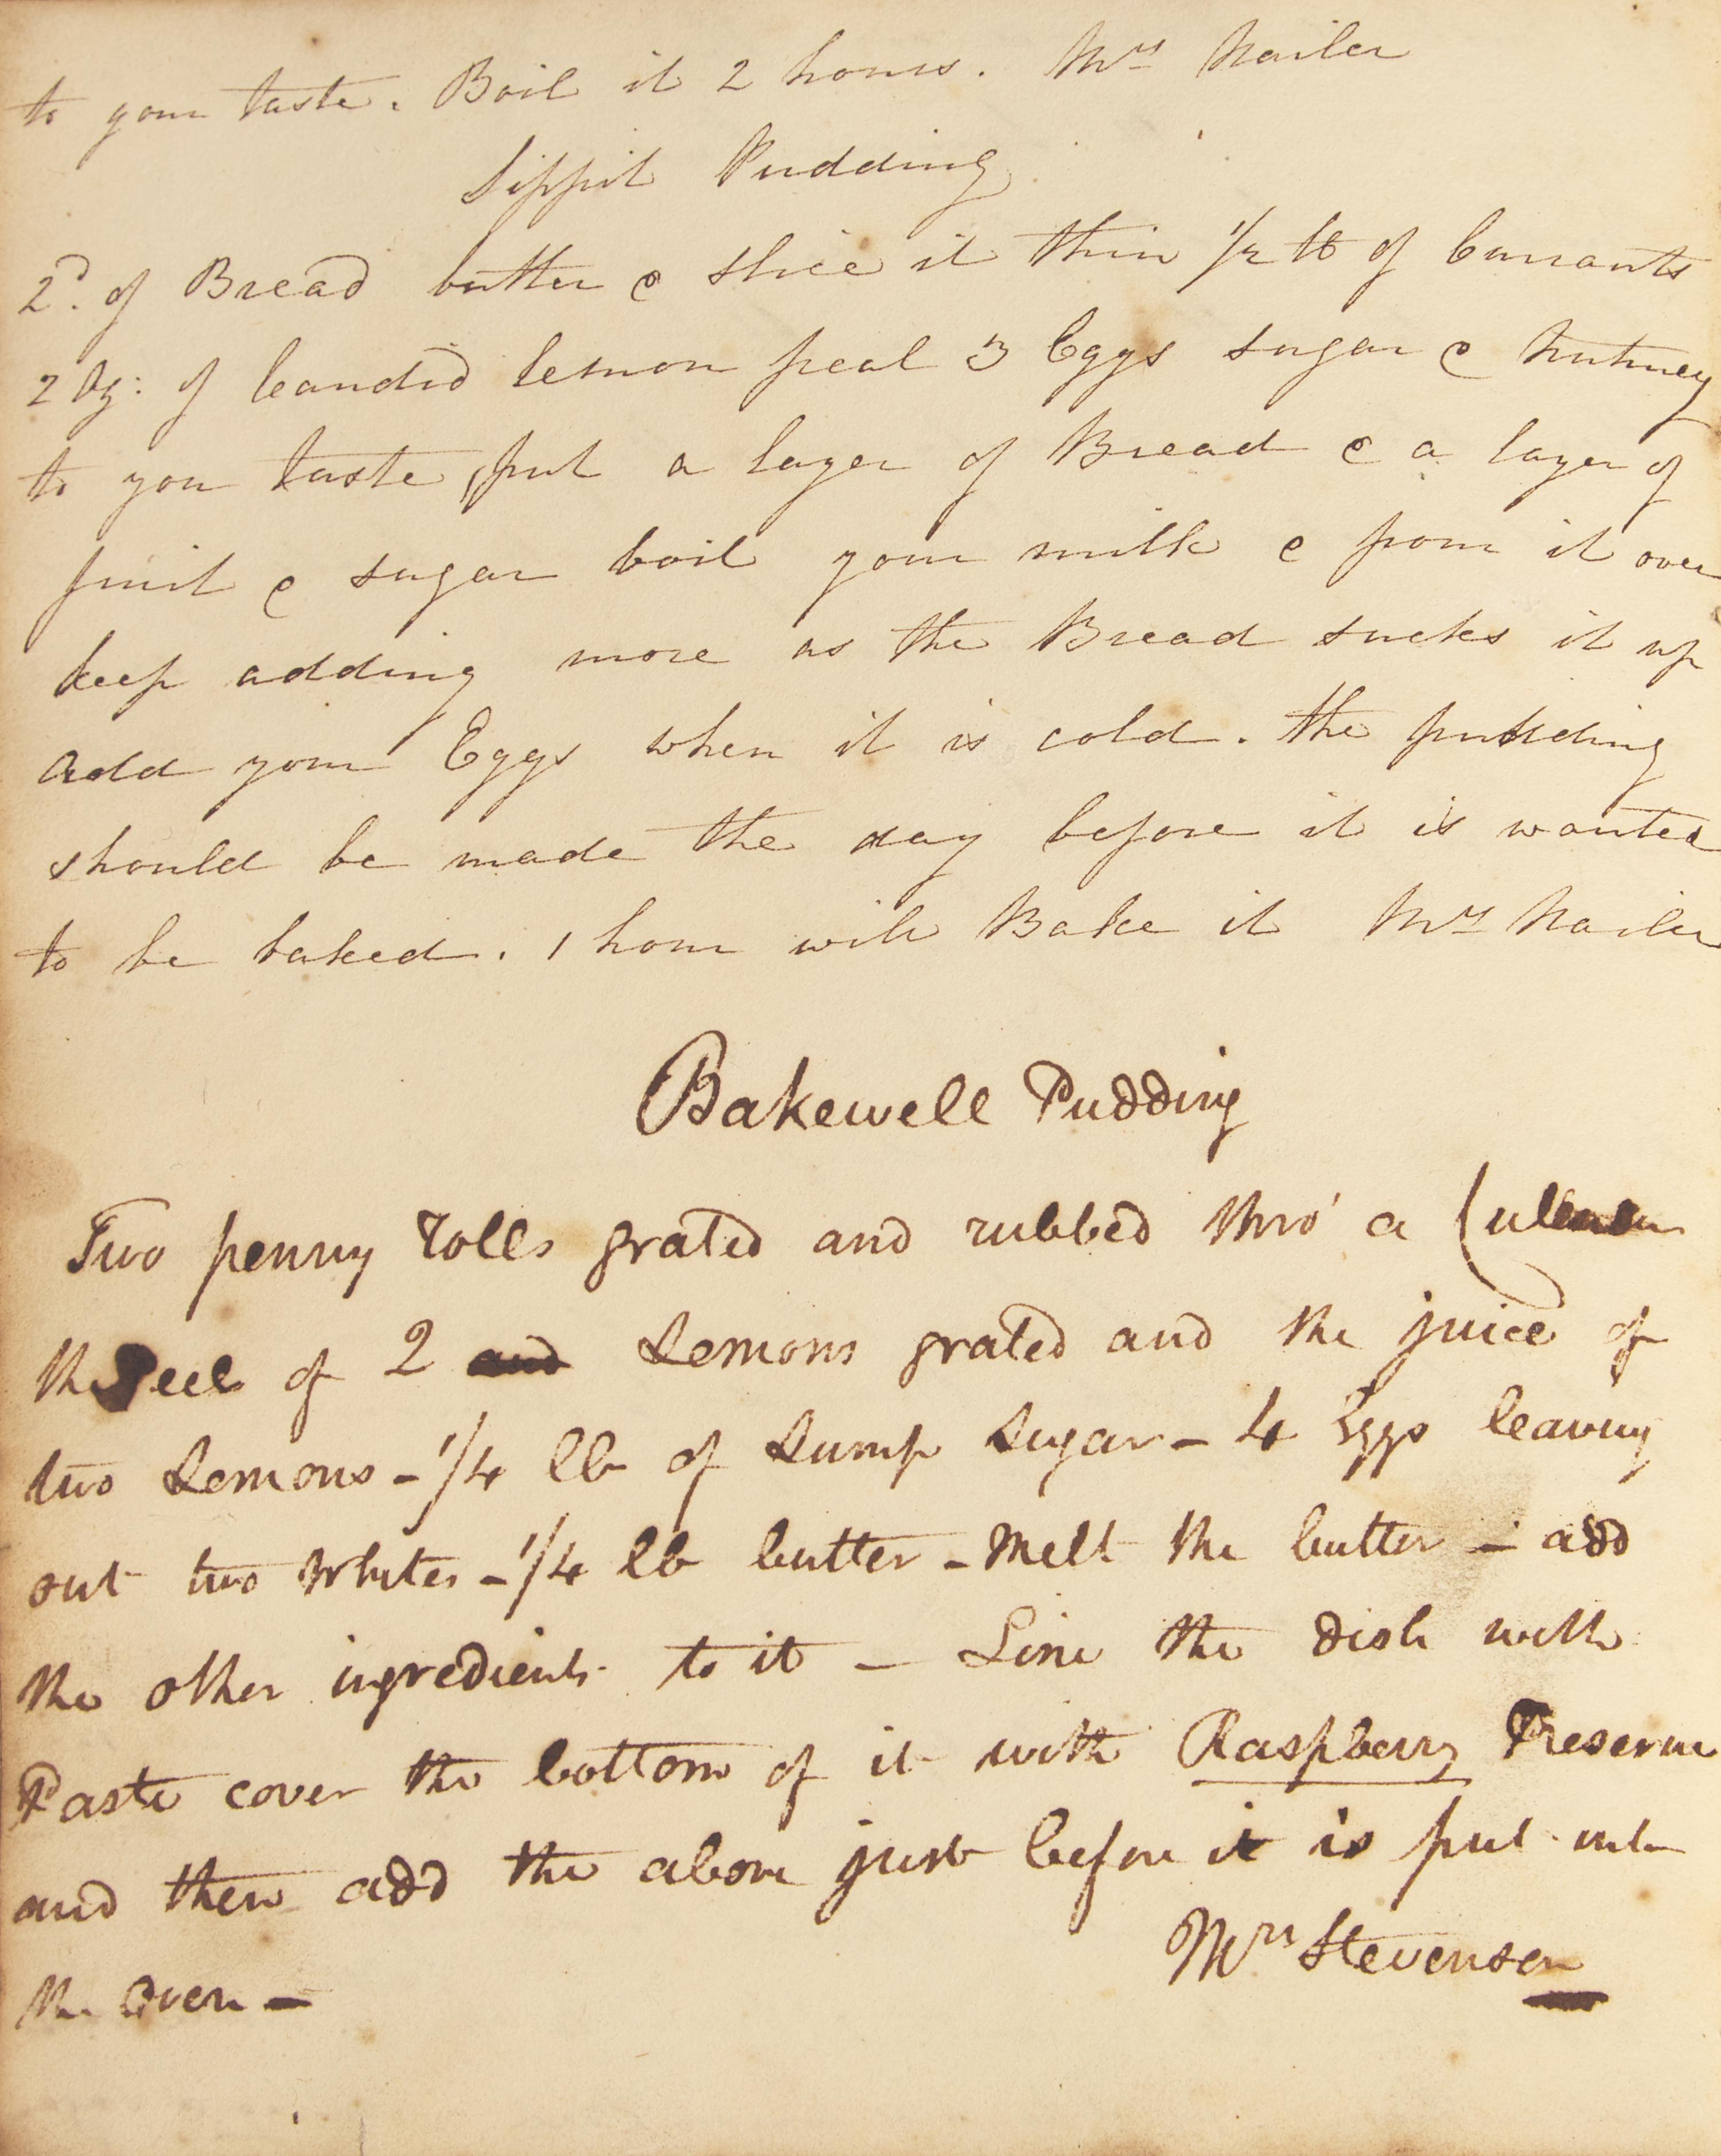 to your taste. Boil it 2 hours. Mrs Nailer
Sippit Pudding
2d. of Bread butter & slice it thin 1/2 lb of Currants
2 Oz: of Candid lemon peal 3 Eggs sugar & Nutmeg
to you taste, put a layer of Bread & a layer of
fruit & sugar boil your milk & pour it over
keep adding more as the Bread sucks it up
add your Eggs when it is cold. the pudding
should be made the day before it is wanted
to be baked. 1 hour will Bake it Mrs Nailer
Bakewell Pudding
Two penny rolls grated and rubbed thro' a
the Peel of 2 and Lemons grated and the juice of
two Lemons - 1/4 lb of Lump Sugar - 4 Eggs leaving
out two Whites - 1/4 lb butter - Melt the butter - add
the other ingredients to it - Line the dish with
Paste cover the bottom of it with Raspberry Preserve
and then add the above just before it is put into
the Oven -
Mrs Stevenson